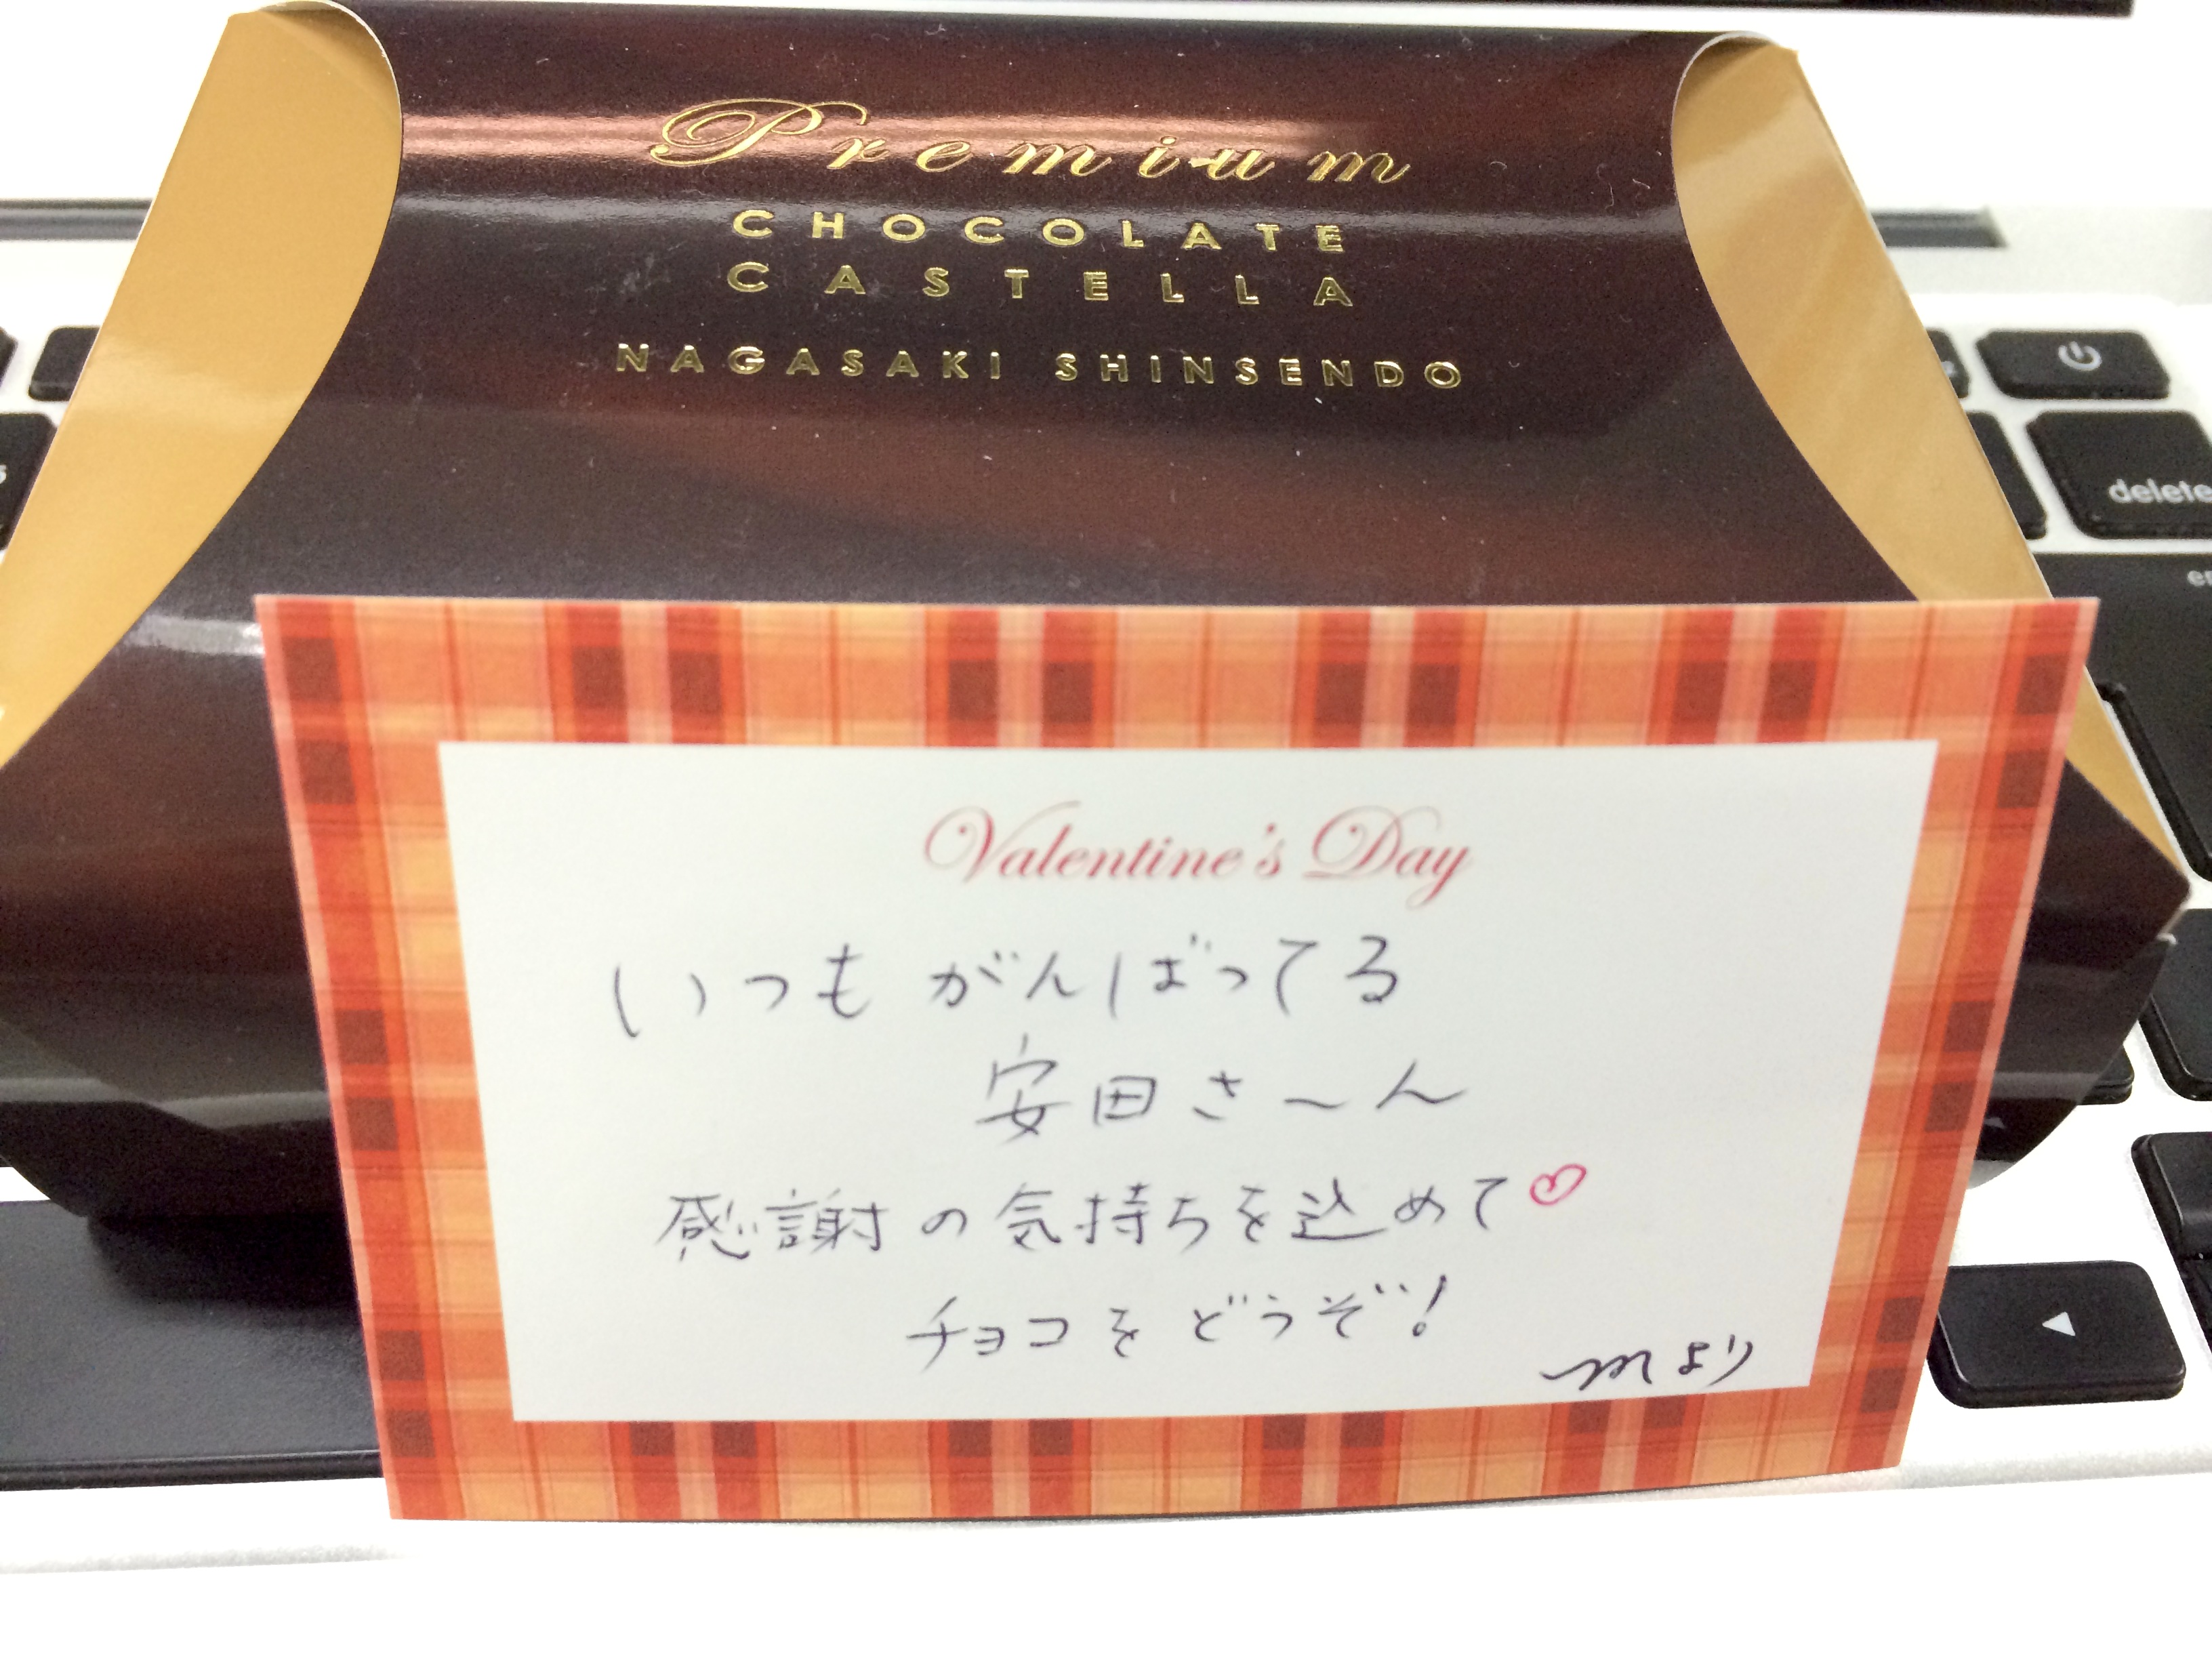 Premium
CHOCOLATE
CASTELLA
NAGASAKI SHINSENDO
delete
Valentine's Day
いつも がんばってる
安田さ〜ん
感謝の気持ちを込めて♡
チョコをどうぞ!
mより